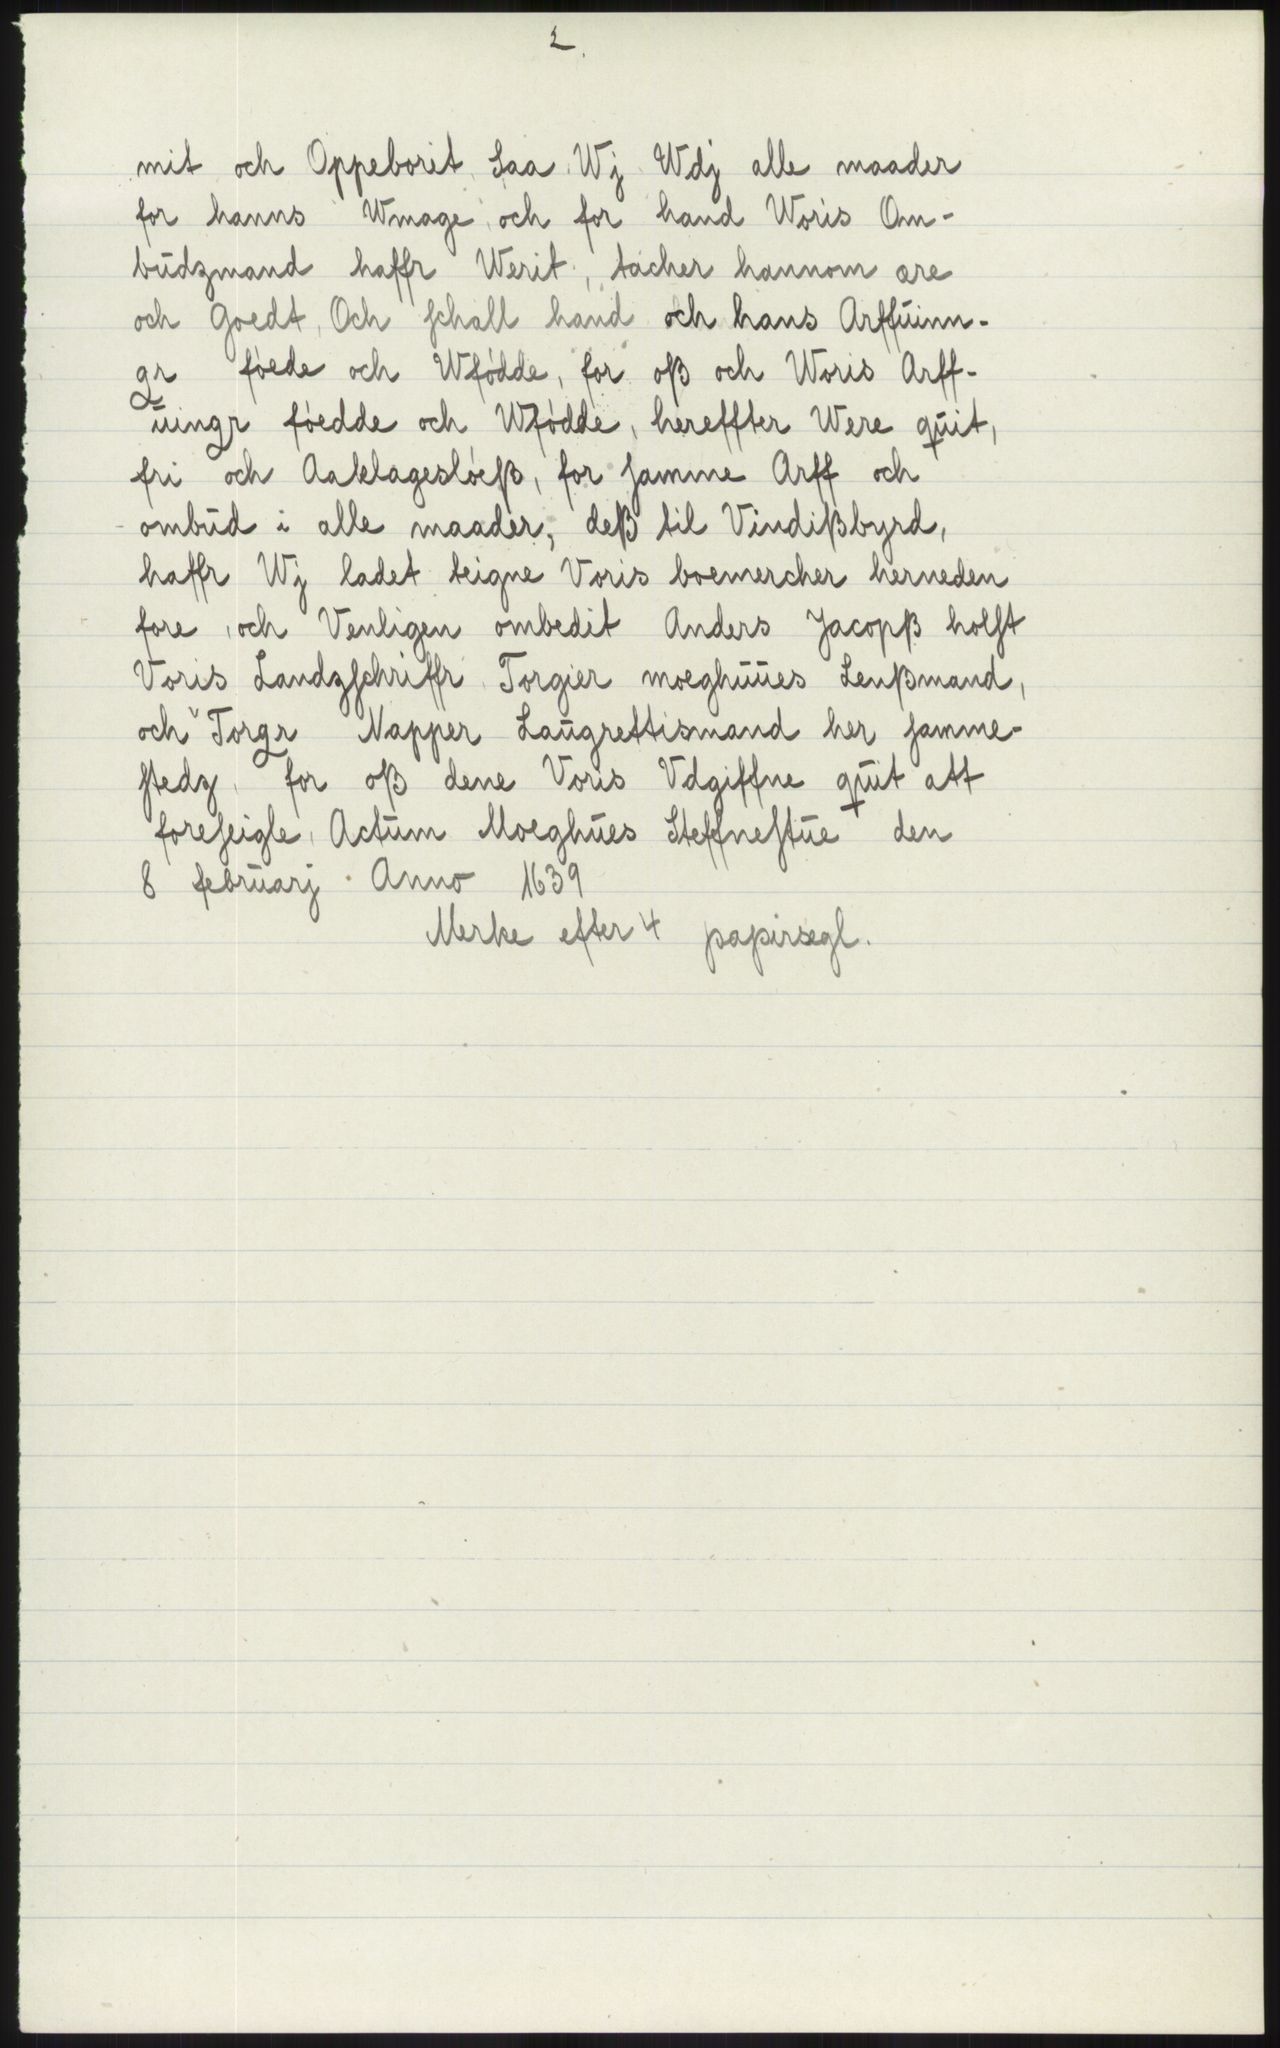 2.
mit och Oppeborit, Saa Wj Wdj alle maader
for hanns Wmage, och for hand Woris Om-
būdzmand haffr Werit, tacher hannom ære
och Goedt, Och schall hand och hans Arffūinn-
gr fóede och Wfódde, for oß och Woris Arff-
ūingr fóedde och Wfódde, hereffter Were qūit,
fri och Aaklageslóeß, for samme Arff och
ombūd i alle maader, deß til Vindißbyrd,
haffr Wj ladet teigne Voris boemercher herneden
fore, och Venligen ombedit Anders Jacopß holst
Voris Landzschriffr Torgier moeghūūes Lenßmand,
och Torgr Napper Laūgrettismand her samme-
stedz, for oß dene Voris Vdgiffne qūit att
foreseigle, Actūm Moeghūes Steffnestūe den
8 febrūarj Anno 1639
Merke efter 4 papirsegl.